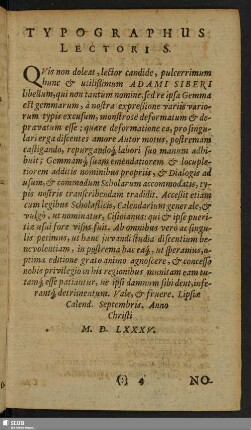 TYPOGRAPHUS
LECTORI S.
QVis non doleat, lector candide, pulcerrimum
hunc & utilißimum ADAMI SIBERI
libellum, qui non tantum nomine, sed re ipsa Gemma
est gemmarum, à nostra expreßione variis vario-
rum typis excusum, monstrosè deformatum & de-
pravatum esse: quare deformatione ea, pro singu-
lari erga discentes amore Autor motus, postremam
castigando, repurgandoq́; labori suo manum adhi-
buit; Gemmamq́; suam emendatiorem & locuple-
tiorem additis nominibus propriis, & Dialogis ad
usum, & commodum Scholarum accommodatis, ty-
pis nostris transcribendam tradidit. Acceßit etiam
cum legibus Scholasticis, Calendarium generale, &
vulgò, ut nominatur, Cisioianus: qui & ipse pueri-
tiæ usui fore visus fuit. Ab omnibus verò ac singu-
lis petimus, ut hanc juvandi studia discentium be-
nevolentiam, in publicum hac eaq́; ut speramus, o-
ptima editione grato animo agnoscere, & concesso
nobis privilegio in his regionibus munitam eam tu-
tamq́; esse patiantur, ne ipsi damnum sibi dent, infe-
rantq́; detrimentum. Vale, & fruere. Lipsiæ
Calend. Septembris. Anno
Christi
M. D. LXXXV.
(:) 4 NO-
SLUB